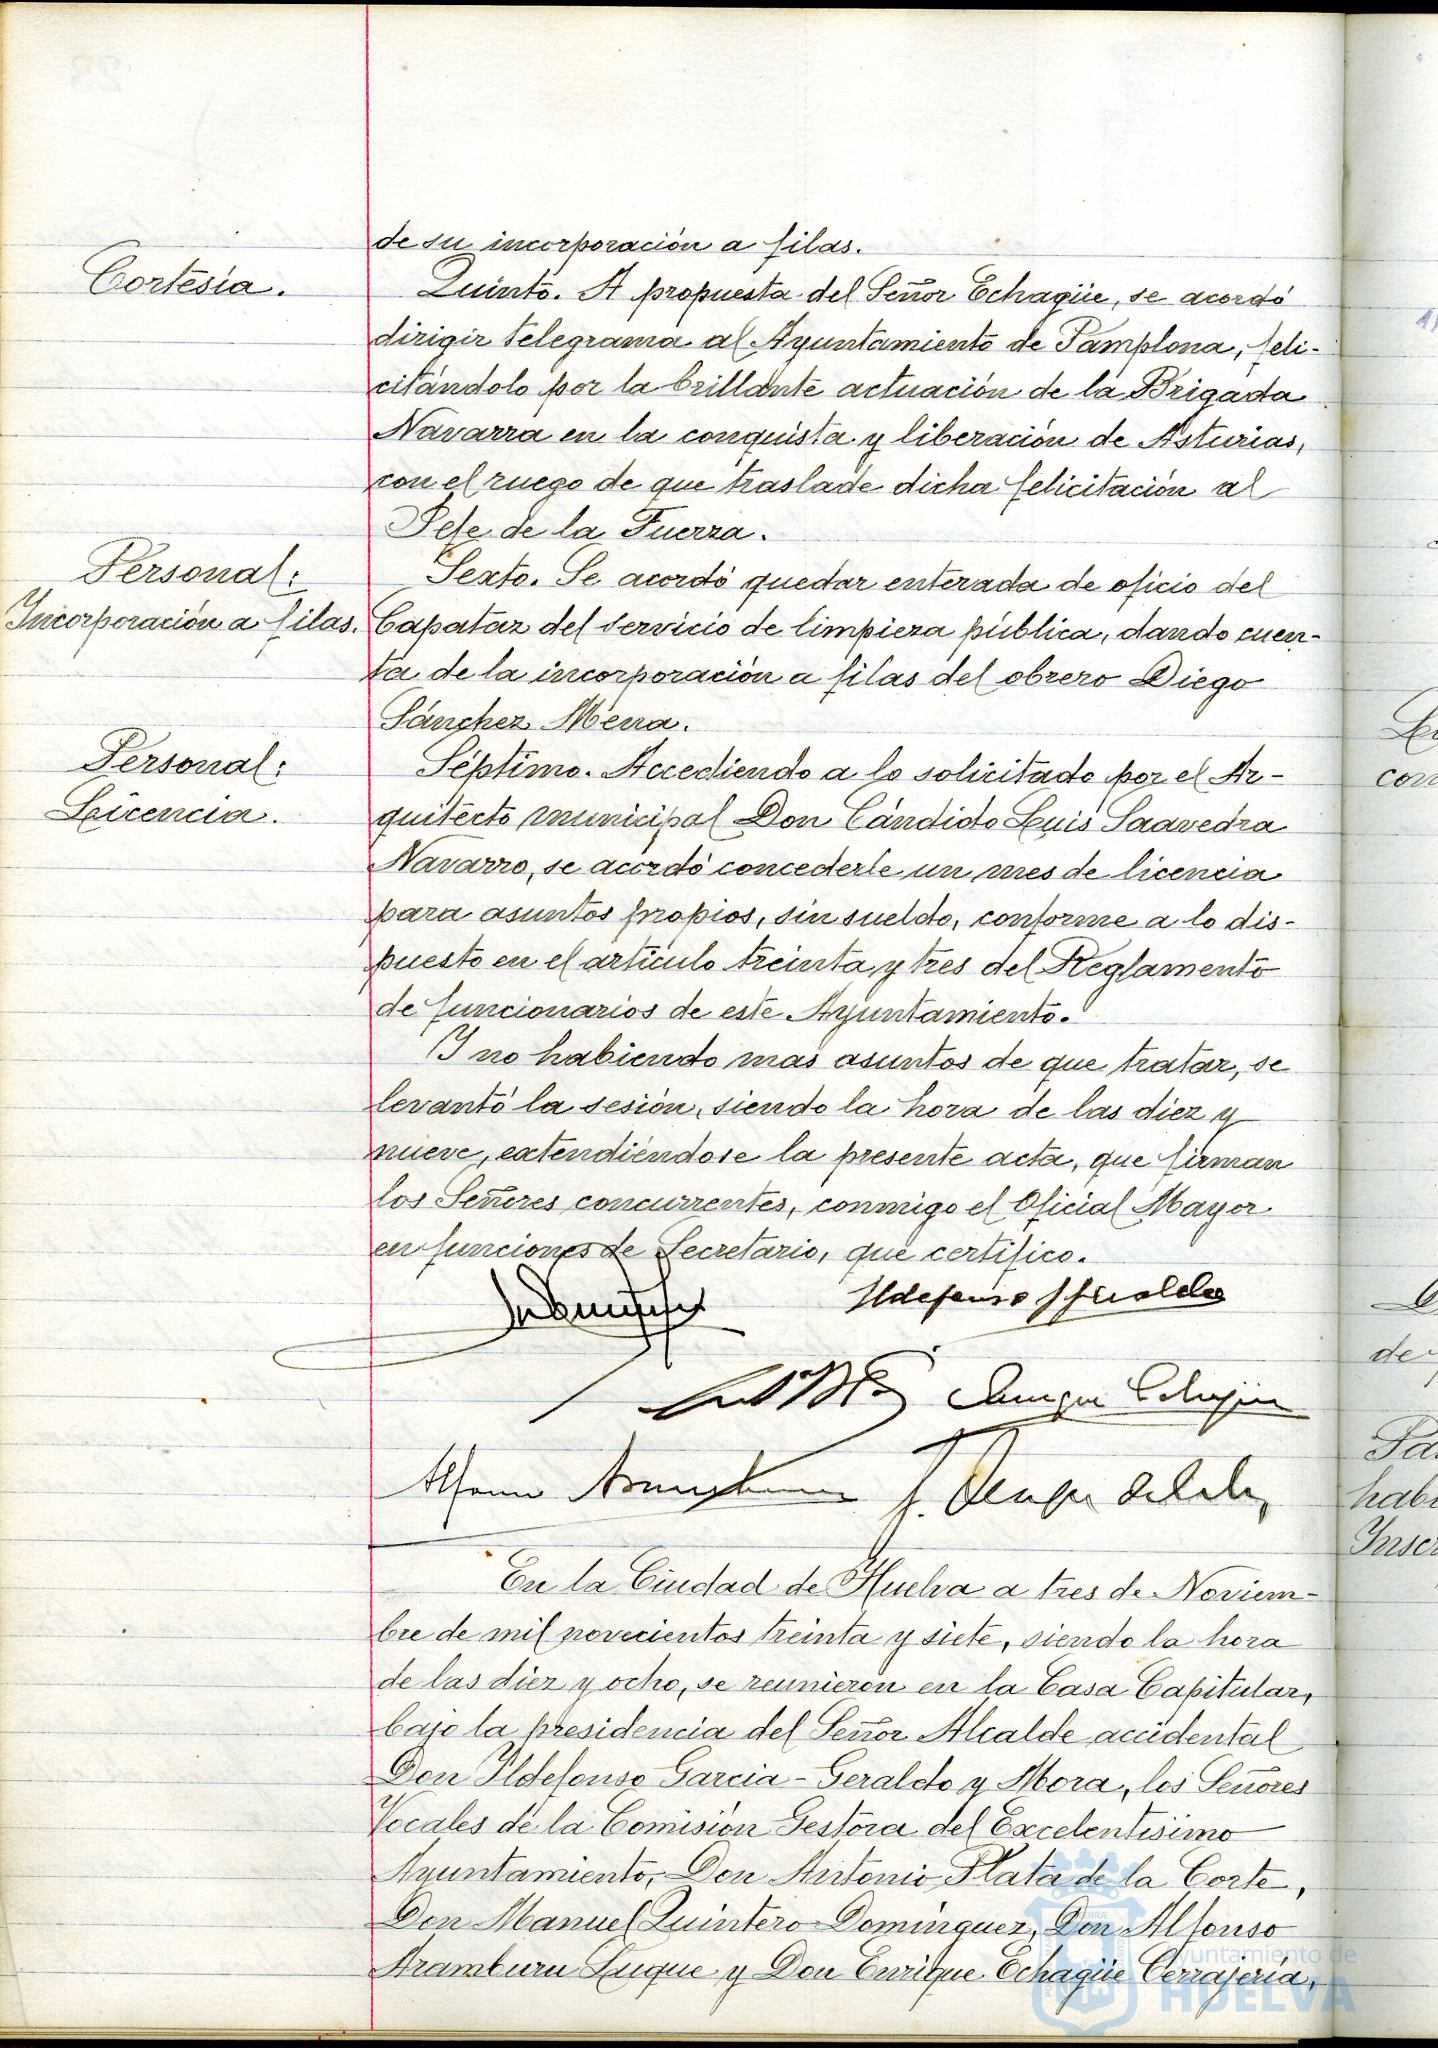 de su incorporación a filas.
Cortesía.
Quinto. A propuesta del Señor Echagüe, se acordó
dirigir telegrama al Ayuntamiento de Pamplona, feli-
citándolo por la brillante actuación de la Brigada
Navarra en la conquista y liberación de Asturias,
con el ruego de que traslade dicha felicitación al
Jefe de la Fuerza.
Personal:
Incorporación a filas.
Sexto. Se acordó quedar enterada de oficio del
Capataz del servicio de limpieza pública, dando cuen-
ta de la incorporación a filas del obrero Diego
Sánchez Mena.
Personal:
Licencia.
Séptimo. Accediendo a lo solicitado por el Ar-
quitecto municipal Don Cándido Luis Saavedra
Navarro, se acordó concederle un mes de licencia
para asuntos propios, sin sueldo, conforme a lo dis-
puesto en el artículo treinta y tres del Reglamento
de funcionarios de este Ayuntamiento.
Y no habiendo mas asuntos de que tratar, se
levantó la sesión, siendo la hora de las diez y
nueve, extendiéndose la presente acta, que firman
los Señores concurrentes, conmigo el Oficial Mayor
en funciones de Secretario, que certifico.
Ildefonso
Enrique Echagüe
Alfonso Aramburu
En la Ciudad de Huelva a tres de Noviem-
bre de mil novecientos treinta y siete, siendo la hora
de las diez y ocho, se reunieron en la Casa Capitular,
bajo la presidencia del Señor Alcalde accidental
Don Ildefonso Garcia-Geraldo y Mora, los Señores
Vocales de la Comisión Gestora del Excelentísimo
Ayuntamiento, Don Antonio Plata de la Corte,
Don Manuel Quintero Dominguez, Don Alfonso
Aramburu Luque y Don Enrique Echagüe Cerrajería,
Ayuntamiento de
HUELVA